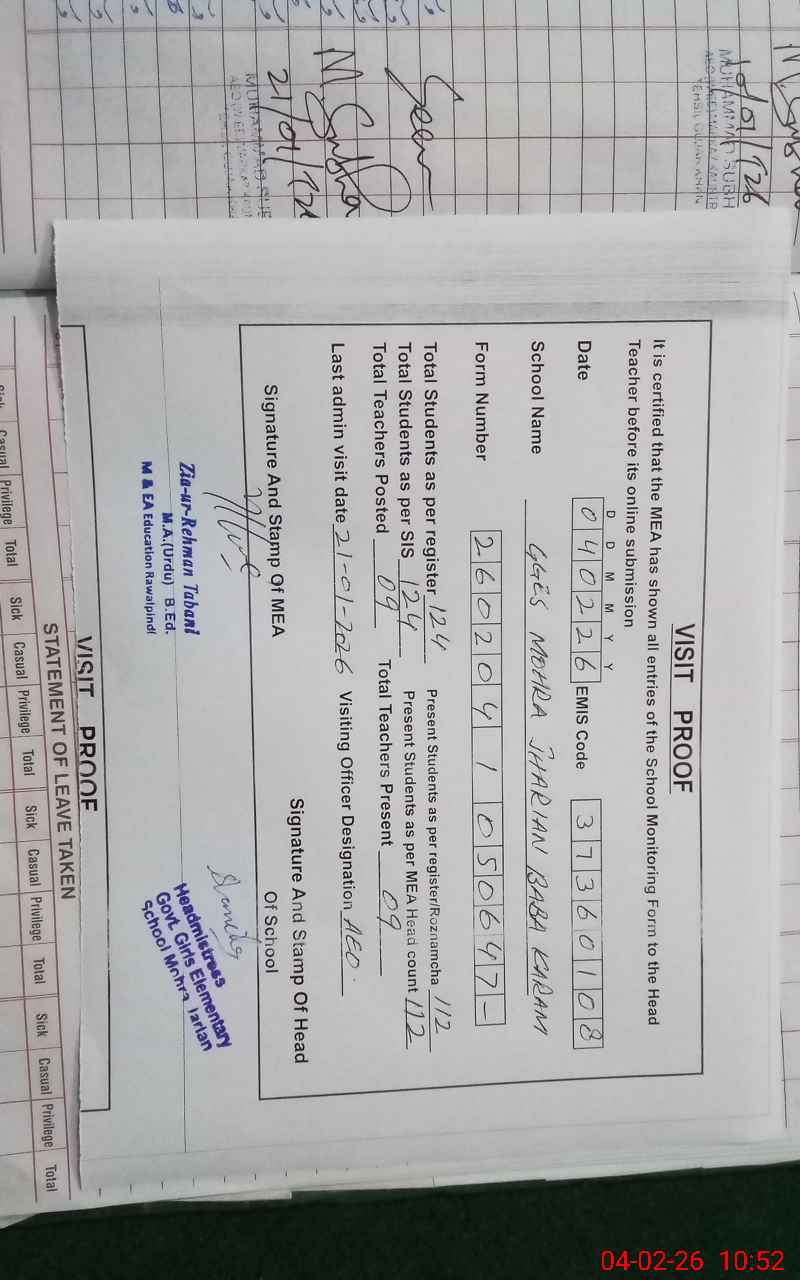 M. Subha
21/01/26
Seen
10/01/26
MUHAMMAD SUBH
VISIT PROOF
It is certified that the MEA has shown all entries of the School Monitoring Form to the Head
Teacher before its online submission
D D M M Y Y
Date 040226 EMIS Code 37360108
School Name GGES MOHRA JHARIAN BABA KARAM
Form Number 2602041050647-
Total Students as per register 124 Present Students as per register/Roznamcha 112
Total Students as per SIS 124 Present Students as per MEA Head count 112
Total Teachers Posted 09 Total Teachers Present 09
Last admin visit date 21-01-2026 Visiting Officer Designation AEO.
Signature And Stamp Of MEA
Signature And Stamp Of Head
Of School
Zia-ur-Rehman Tabani
M.A.(Urdu) B.Ed.
M & EA Education Rawalpindi
Headmistress
Govt. Girls Elementary
School Mohra Jarian
VISIT PROOF
STATEMENT OF LEAVE TAKEN
Sick Casual Privilege Total Sick Casual Privilege Total Sick Casual Privilege Total Sick Casual Privilege Total
04-02-26 10:52